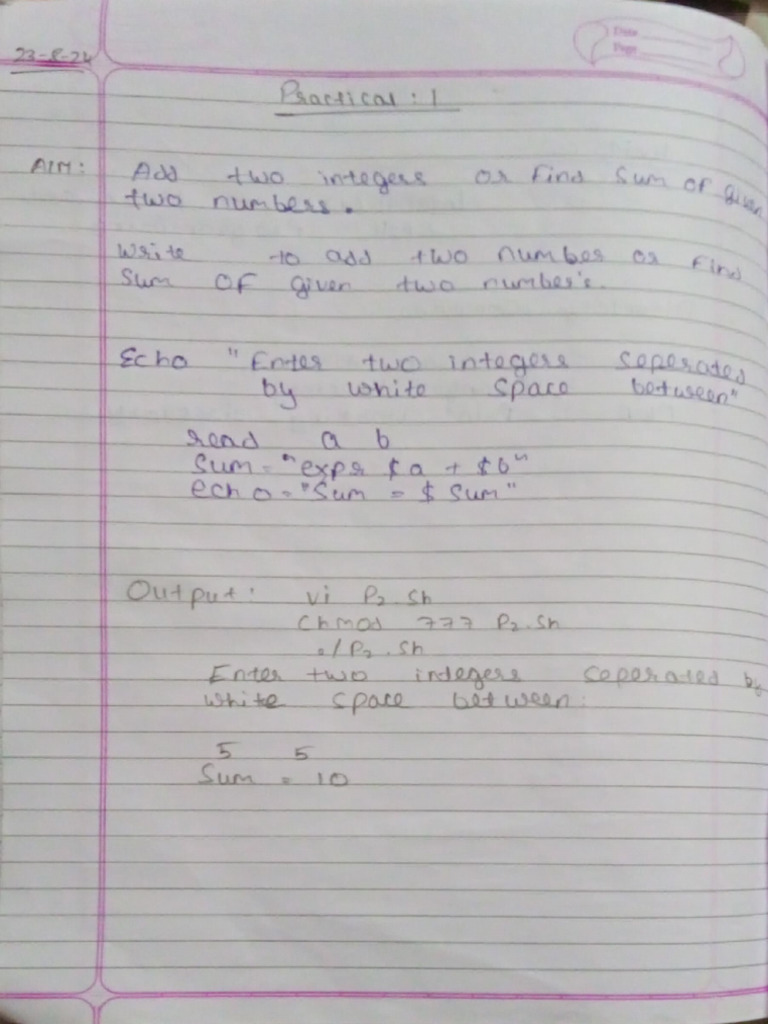 23-8-24
Date
Page
Practical : 1
AIM : Add two integers or Find Sum of given
two numbers.
Write to add two number or find
Sum OF given two number's.
Echo "Enter two integers seperated
by white space between"
read a b
Sum = "expr $a + $b"
echo = "Sum = $ Sum"
Output : vi P2.sh
Chmod 777 P2.sh
./P2.sh
Enter two integers seperated by
white space between:
5 5
Sum = 10